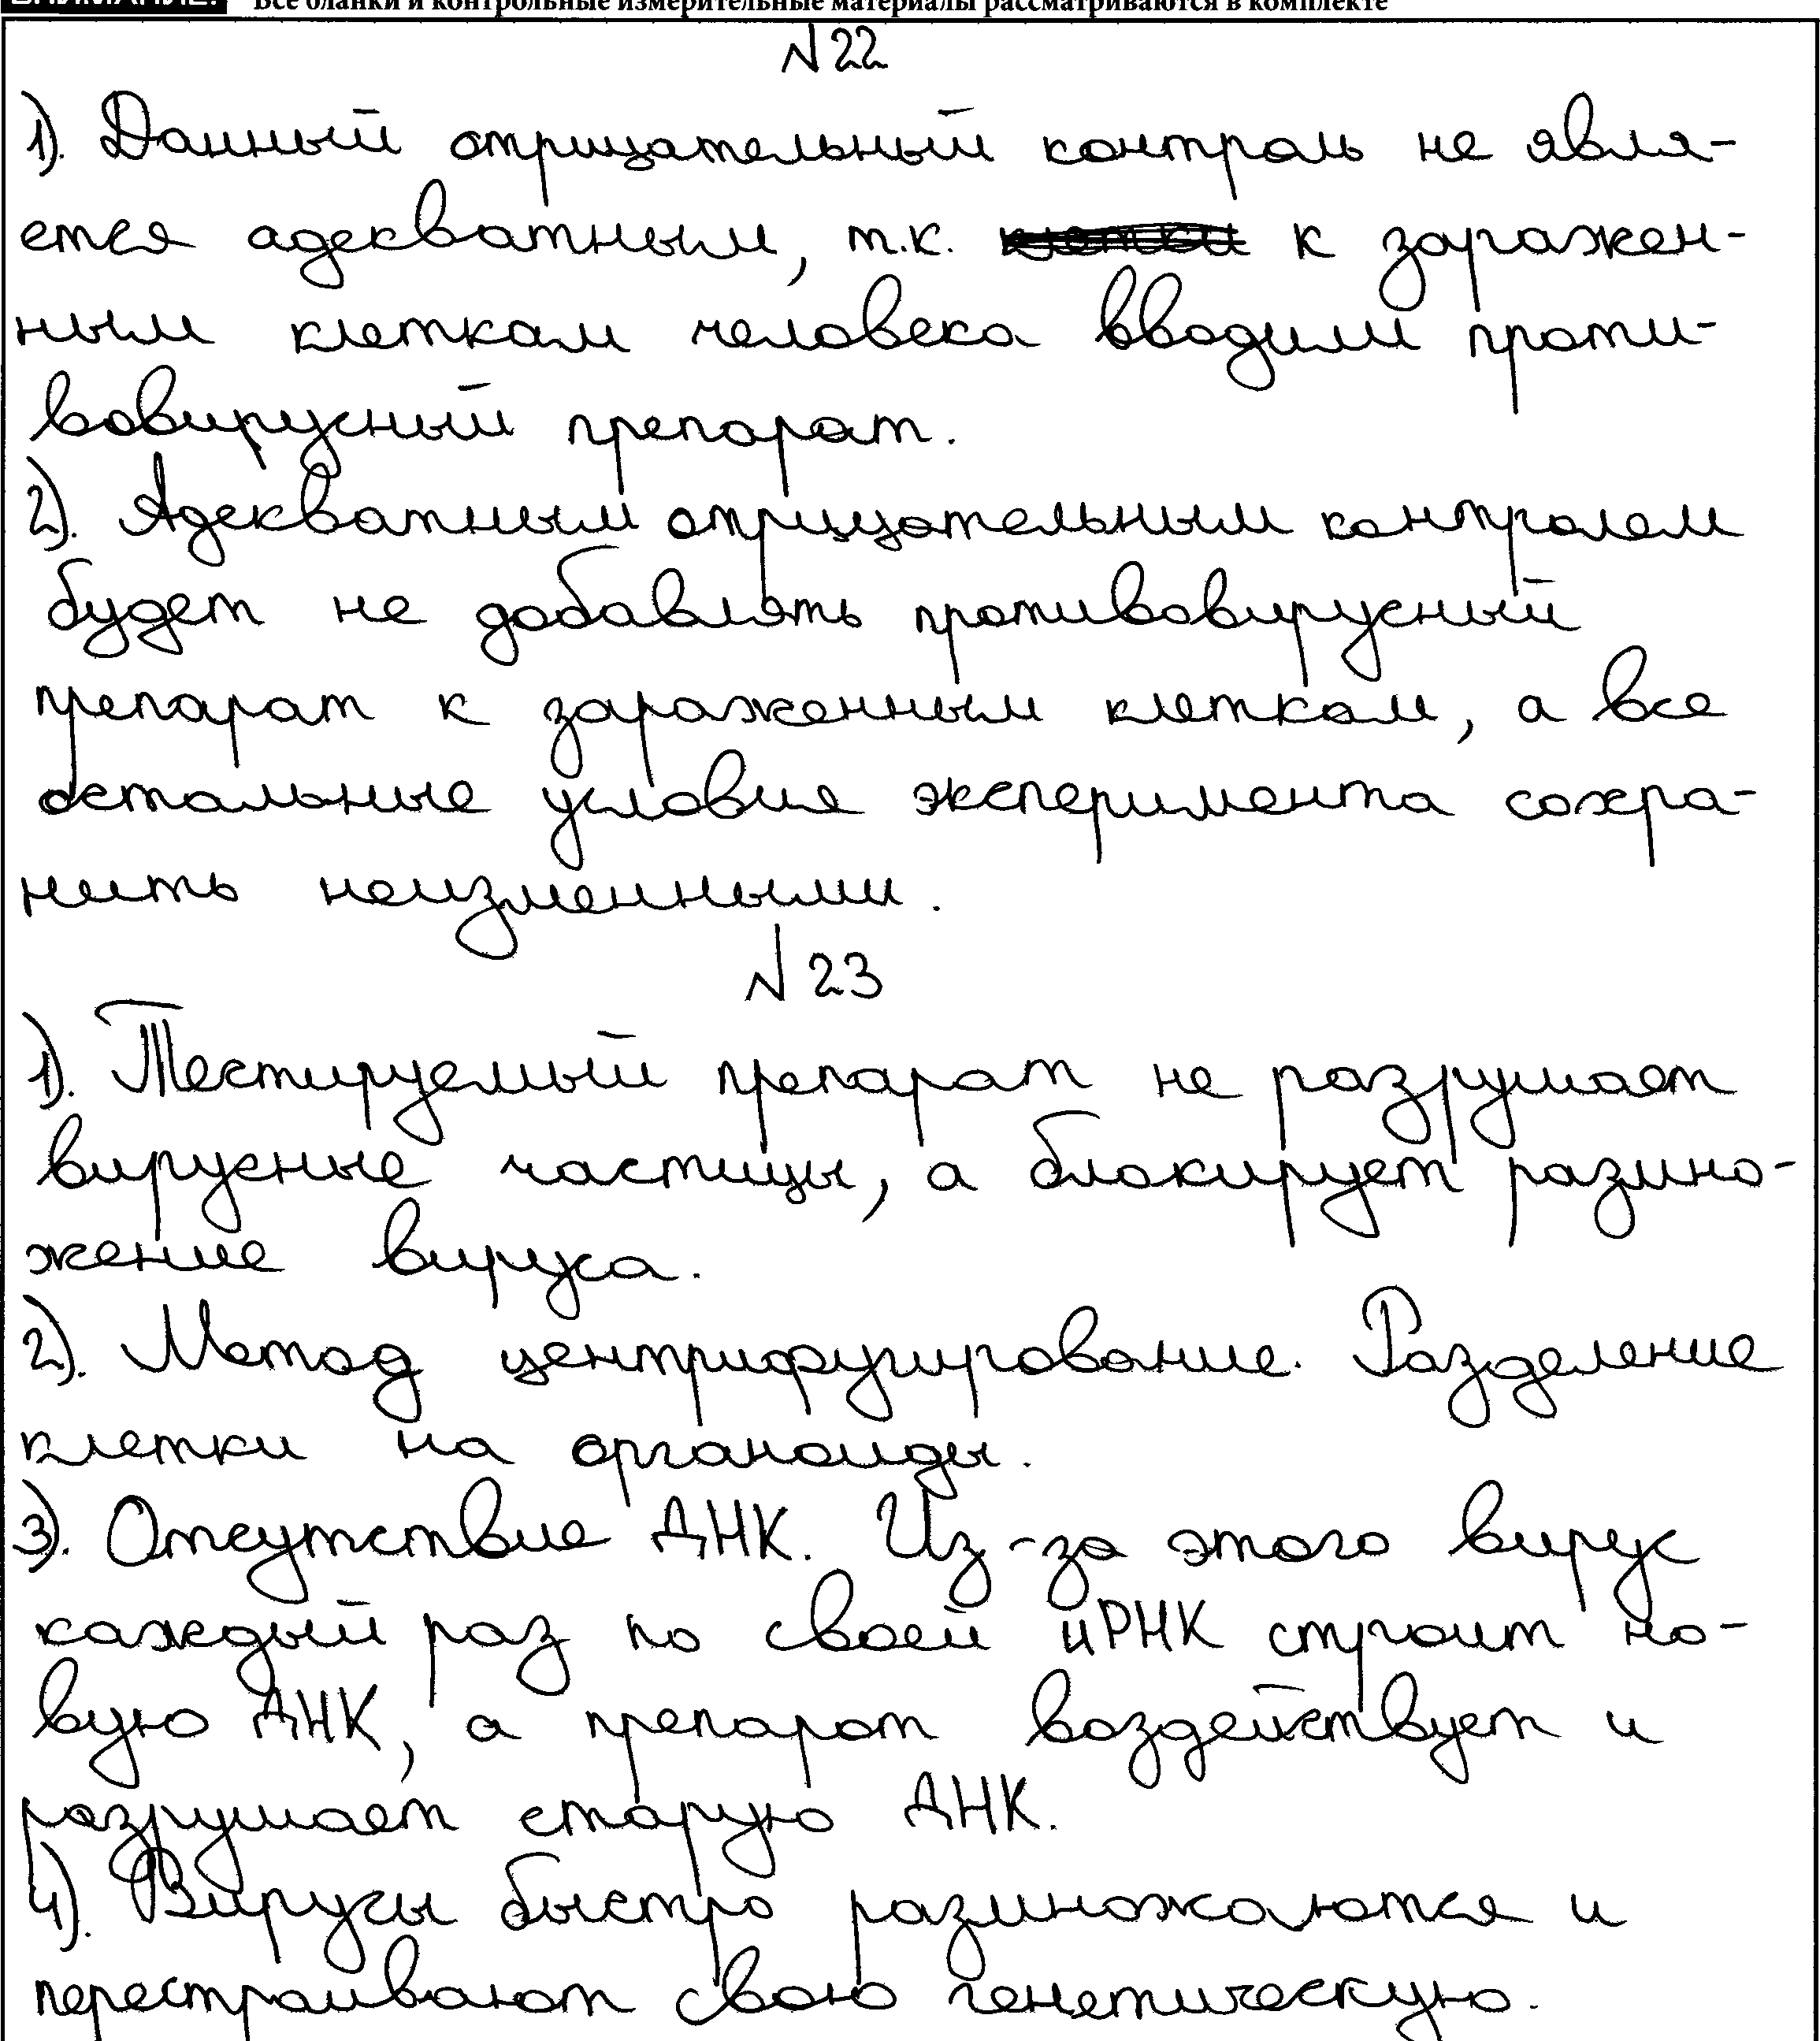 Все бланки и контрольные измерительные материалы рассматриваются в комплекте
№22
1). Данный отрицательный контроль не явля-
ется адекватным, т.к. к заражен-
ным клеткам человека вводили проти-
вовирусный препарат.
2). Адекватным отрицательным контролем
будет не добавлять противовирусный
препарат к зараженным клеткам, а все
остальные условия эксперимента сохра-
нить неизменными.
№23
1). Тестируемый препарат не разрушает
вирусные частицы, а блокирует размно-
жение вируса.
2). Метод центрифугирование. Разделение
клетки на органоиды.
3). Отсутствие ДНК. Из-за этого вирус
каждый раз по своей иРНК строит но-
вую ДНК, а препарат воздействует и
разрушает старую ДНК.
4). Вирусы быстро размножаются и
перестраивают свою генетическую.